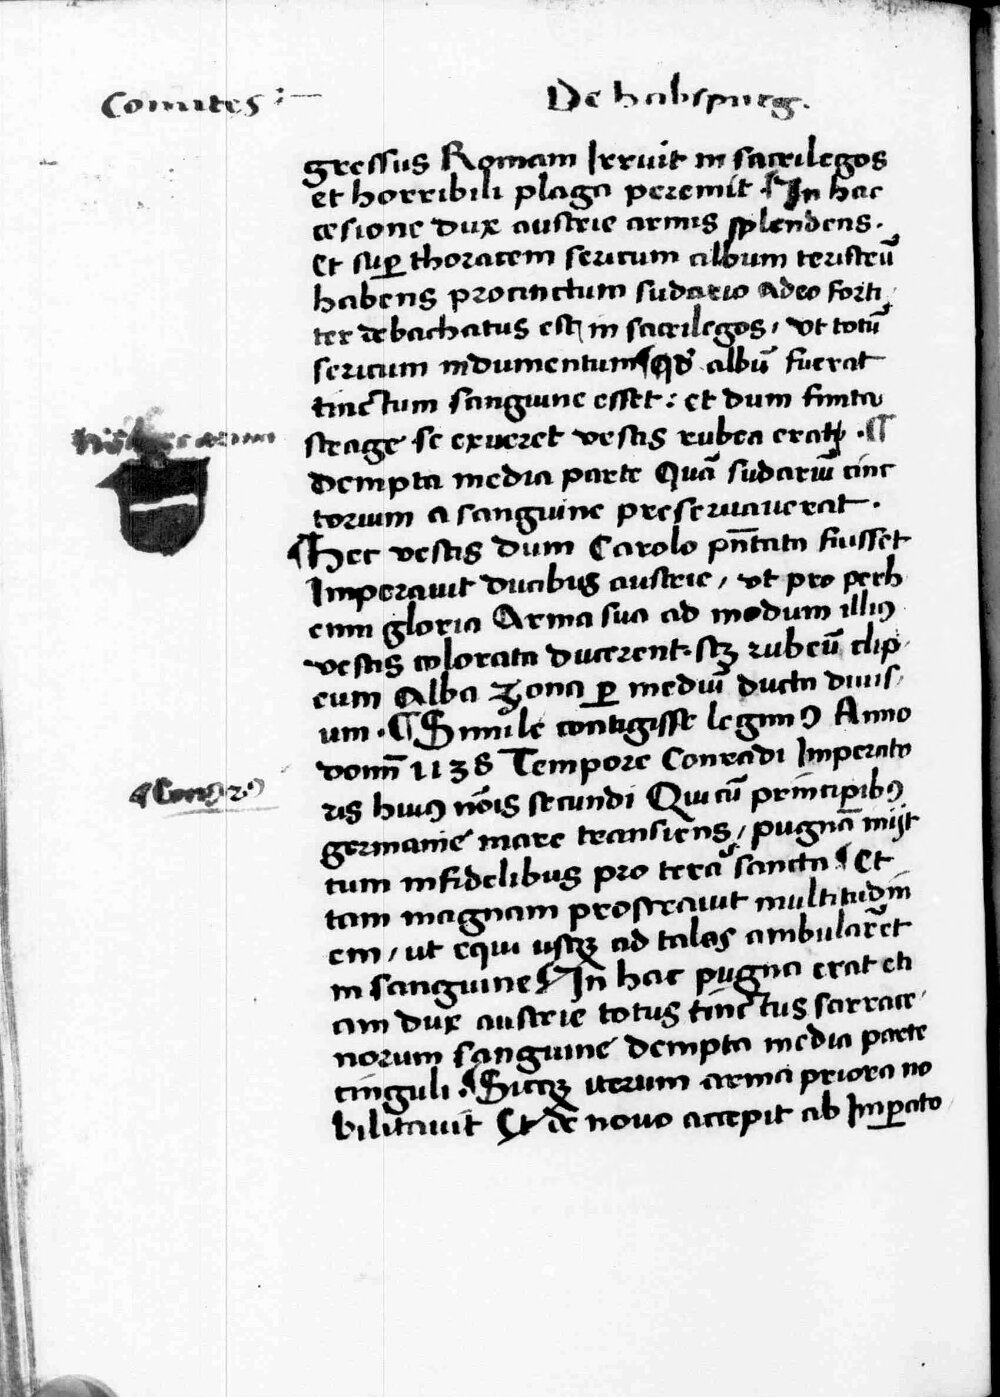 Comites :— De habspurg.
gressus Romam Irruit in sacrilegos
et horribili plaga peremit ¶ In hac
cesione dux austrie armis splendens .
Et sup thoracem sericum album teristeū
habens procinctum sudario adeo forti
ter debachatus est in sacrilegos , vt totū
sericum indumentum ¶ qd albū fuerat
tinctum sanguine esset : et dum finita
strage se exueret vestis rubea erat . ¶
dempta media parte Quā sudariū tinc
torium a sanguine preservaverat .
¶ Hec vestis dum Carolo pn̄tata fuisset
Imperavit ducibus austrie , vt pro perh
enni gloria Arma sua ad modum illiꝯ
vestis colorata ducerent . scꝫ rubeū clip
eum Alba zona ꝑ mediū ducta divis
um . ¶ Simile contigisse leginꝯ Anno
domī 1138 Tempore Conradi Imperato
ris huiꝯ nōis secundi Qui cū principibꝯ
germanie mare transiens , pugnā mijt
tum infidelibus pro terā sancta ¶ Et
tam magnam prostravit multitudin
em , ut equi usqꝫ ad talos ambularēt
in sanguine ¶ In hac pugna erat eti
am dux austrie totus tinctus sarrace
norum sanguine dempta media parte
cinguli . ¶ Sicqꝫ iterum arma priora no
bilitavit Et de novo accepit ab Imꝑato